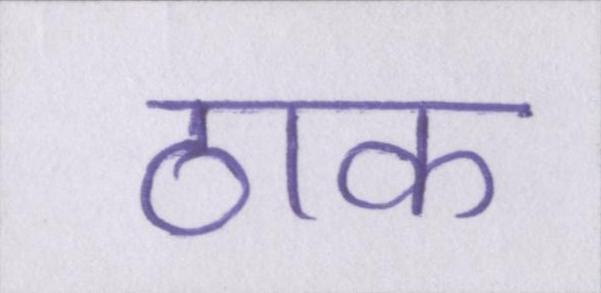 ठाक